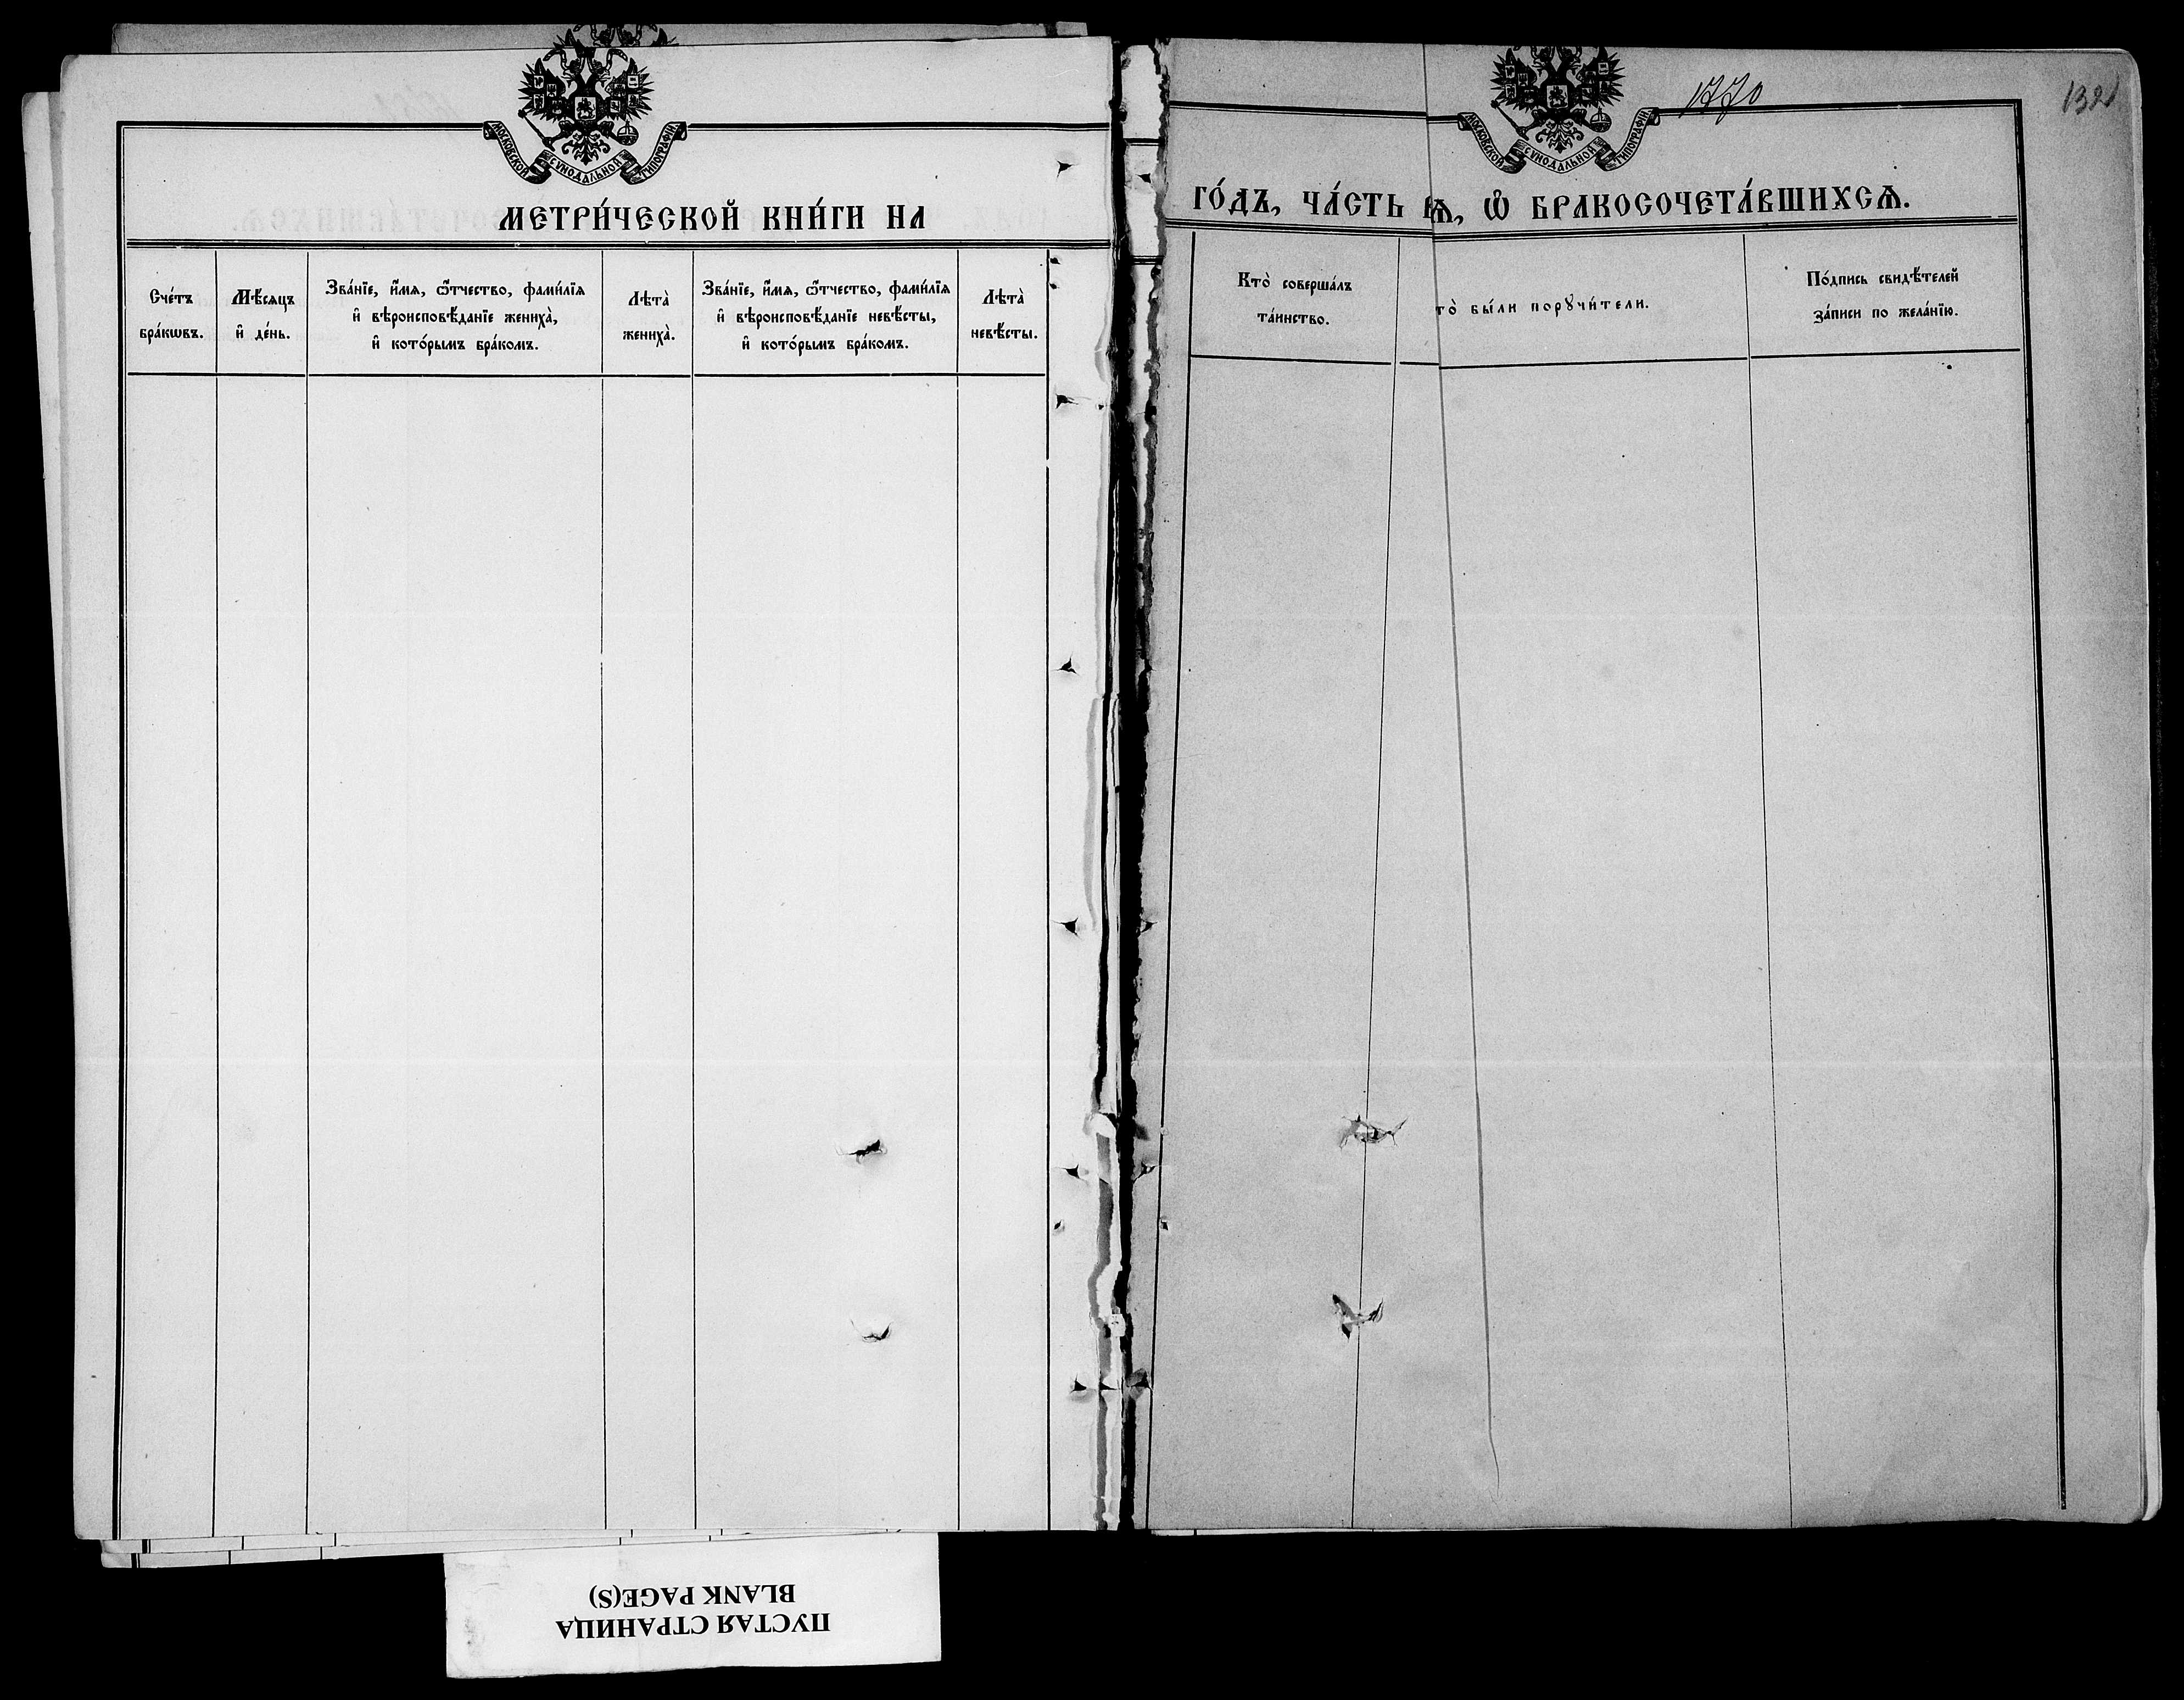 МОСКОВСКОЙ СѴНОДАЛЬНОЙ ТИПОГРАФІИ
МЕТРИ́ЧЕСКОЙ КНИ́ГИ НА
Сче́тъ
бра́кѡвъ.
Мѣ́сяцъ
и҆ де́нь.
Зва́нїе, и҆́мя, ѻ҆́тчество, фами́лїя
и҆ вѣроисповѣ́данїе женихà,
и҆ кото́рымъ бра́комъ.
Лѣтà
женихà.
Зва́нїе, и҆́мя, ѻ҆́тчество, фами́лїя
и҆ вѣроисповѣ́данїе невѣ́сты,
и҆ кото́рымъ бра́комъ.
Лѣтà
невѣ́сты.
1770
МОСКОВСКОЙ СѴНОДАЛЬНОЙ ТИПОГРАФІИ
ГО́ДЪ, ЧА́СТЬ В҃Ѧ, Ѽ БРАКОСОЧЕТА́ВШИХСѦ.
Кто̀ соверша́лъ
та́инство.
то̀ бы́ли порꙋчи́тели.
По́дпись свидѣ́телей
за́писи по жела́нїю.
ПУСТАЯ СТРАНИЦА
BLANK PAGE(S)